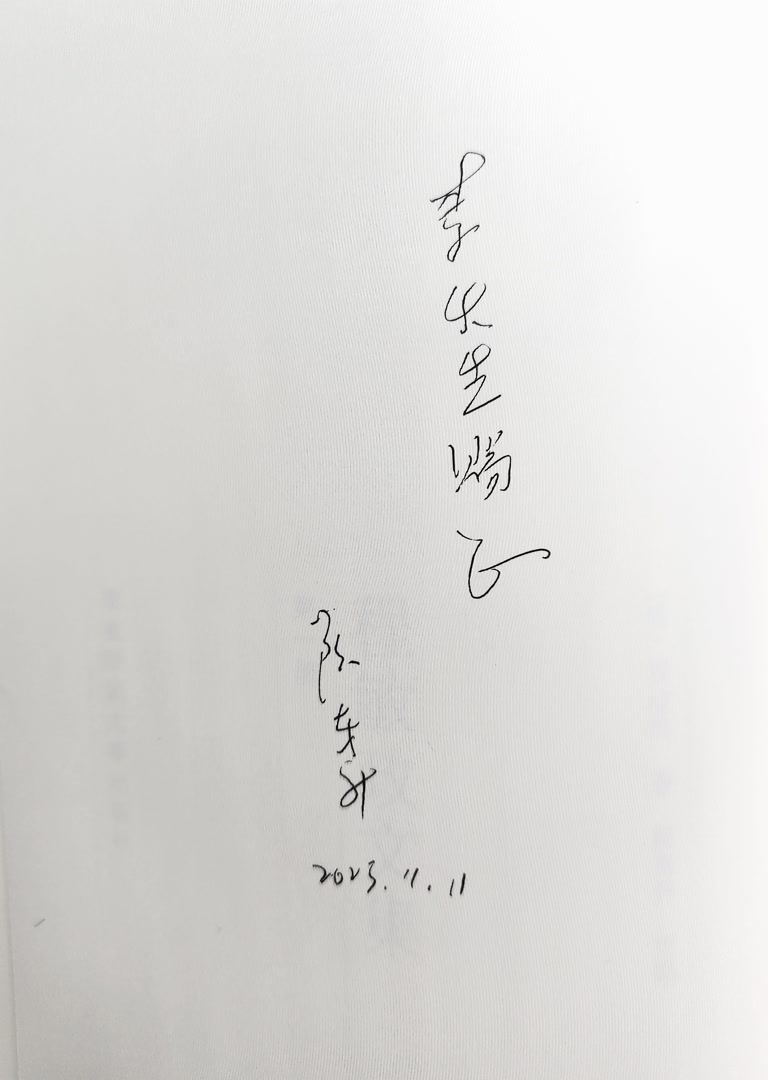 李先生赐正
陈东升
2023.11.11